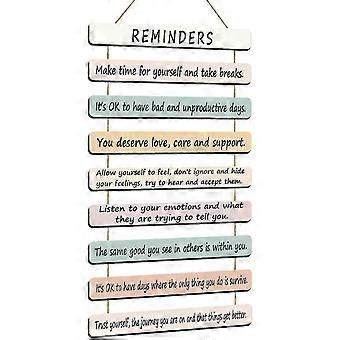 REMINDERS
Make time for yourself and take breaks.
It's OK to have bad and unproductive days.
You deserve love, care and support.
Allow yourself to feel, don't ignore and hide
your feelings, try to hear and accept them.
Listen to your emotions and what
they are trying to tell you.
The same good you see in others is within you.
It's OK to have days where the only thing you do is survive.
Trust yourself, the journey you are on and that things get better.